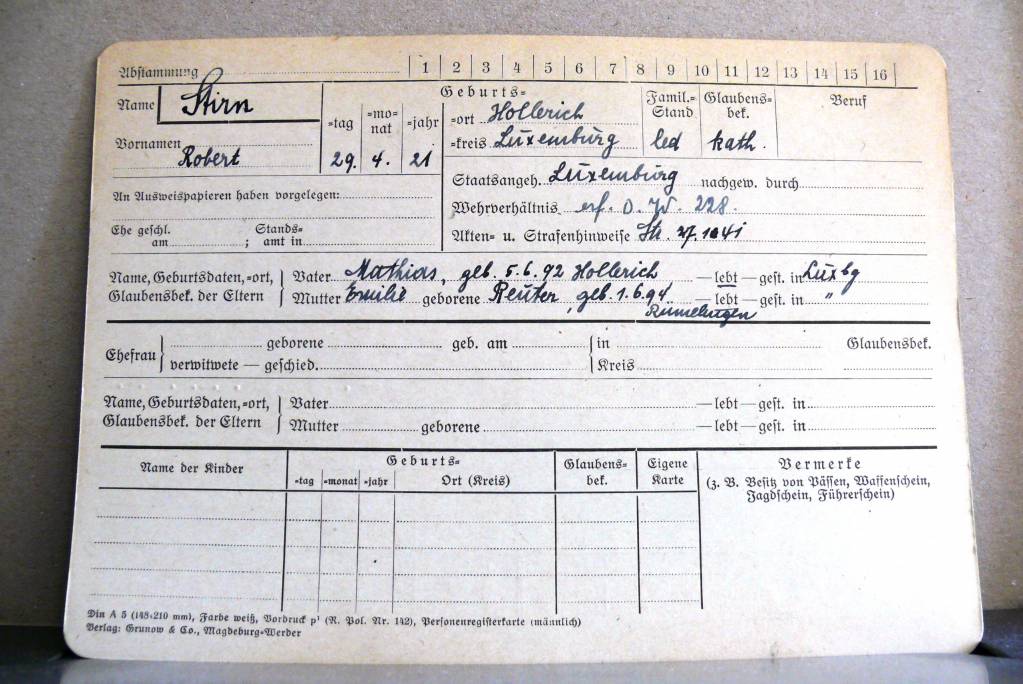 Abstammung 1 2 3 4 5 6 7 8 9 10 11 12 13 14 15 16
Name Stirn
Vornamen Robert
Geburts=
=tag =mo=nat =jahr
29. 4. 21
=ort Hollerich
=kreis Luxemburg
Famil.=Stand
led
Glaubens=bek.
kath.
Beruf
An Ausweispapieren haben vorgelegen:
Ehe geschl. am ; Stands=amt in
Staatsangeh. Luxemburg nachgew. durch
Wehrverhältnis erf. D. W. 228.
Akten= u. Strafenhinweise
Name, Geburtsdaten,=ort, Glaubensbek. der Eltern
Vater Mathias, geb. 5.6.92 Hollerich —lebt—gest. in Luxbg
Mutter Emilie geborene Reuter, geb. 1.6.94 —lebt—gest. in "
Rümelingen
Ehefrau geborene geb. am in Glaubensbek.
verwitwete — geschied. Kreis
Name, Geburtsdaten,=ort, Glaubensbek. der Eltern
Vater —lebt—gest. in
Mutter geborene —lebt—gest. in
Name der Kinder
Geburts=
=tag =monat =jahr Ort (Kreis)
Glaubens=bek.
Eigene Karte
Vermerke
(z. B. Besitz von Pässen, Waffenschein,
Jagdschein, Führerschein)
Din A 5 (148×210 mm), Farbe weiß, Vordruck p¹ (R. Pol. Nr. 142), Personenregisterkarte (männlich)
Verlag: Grunow & Co., Magdeburg=Werder